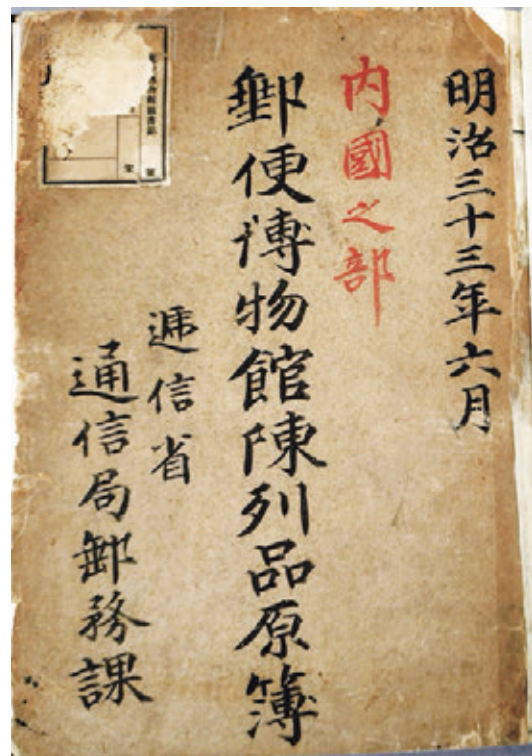 明治三十三年六月
内國之部
郵便博物館陳列品原簿
遞信省
通信局郵務課